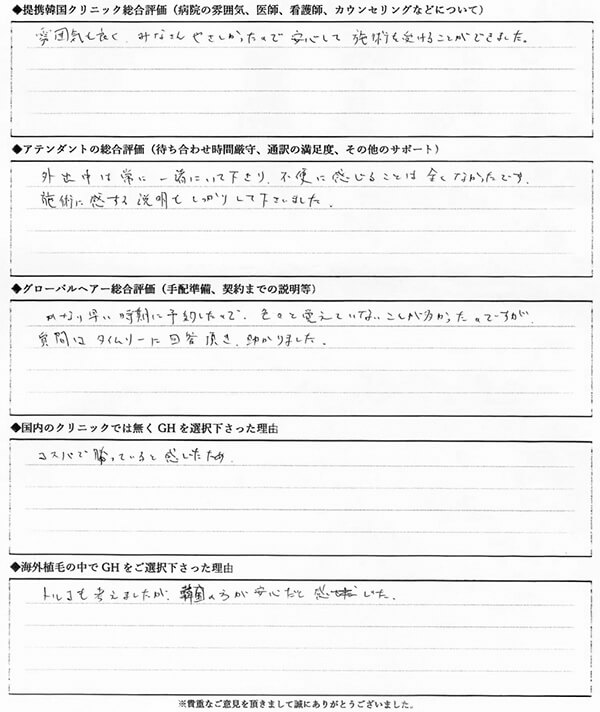 ◆提携韓国クリニック総合評価（病院の雰囲気、医師、看護師、カウンセリングなどについて）
雰囲気も良く、みなさんやさしかったので安心して施術を受けることができました。
◆アテンダントの総合評価（待ち合わせ時間厳守、通訳の満足度、その他のサポート）
外出中は常に一緒にいて下さり、不便に感じることは全くなかったです。
施術に感する説明もしっかりして下さいました。
◆グローバルヘアー総合評価（手配準備、契約までの説明等）
かなり早い時期に予約したので、色々と覚えていないことが多かったのですが、
質問はタイムリーに回答頂き、助かりました。
◆国内のクリニックでは無くGHを選択下さった理由
コスパで勝っていると感じたため。
◆海外植毛の中でGHをご選択下さった理由
トルコも考えましたが、韓国の方が安心だと感じました。
※貴重なご意見を頂きまして誠にありがとうございました。